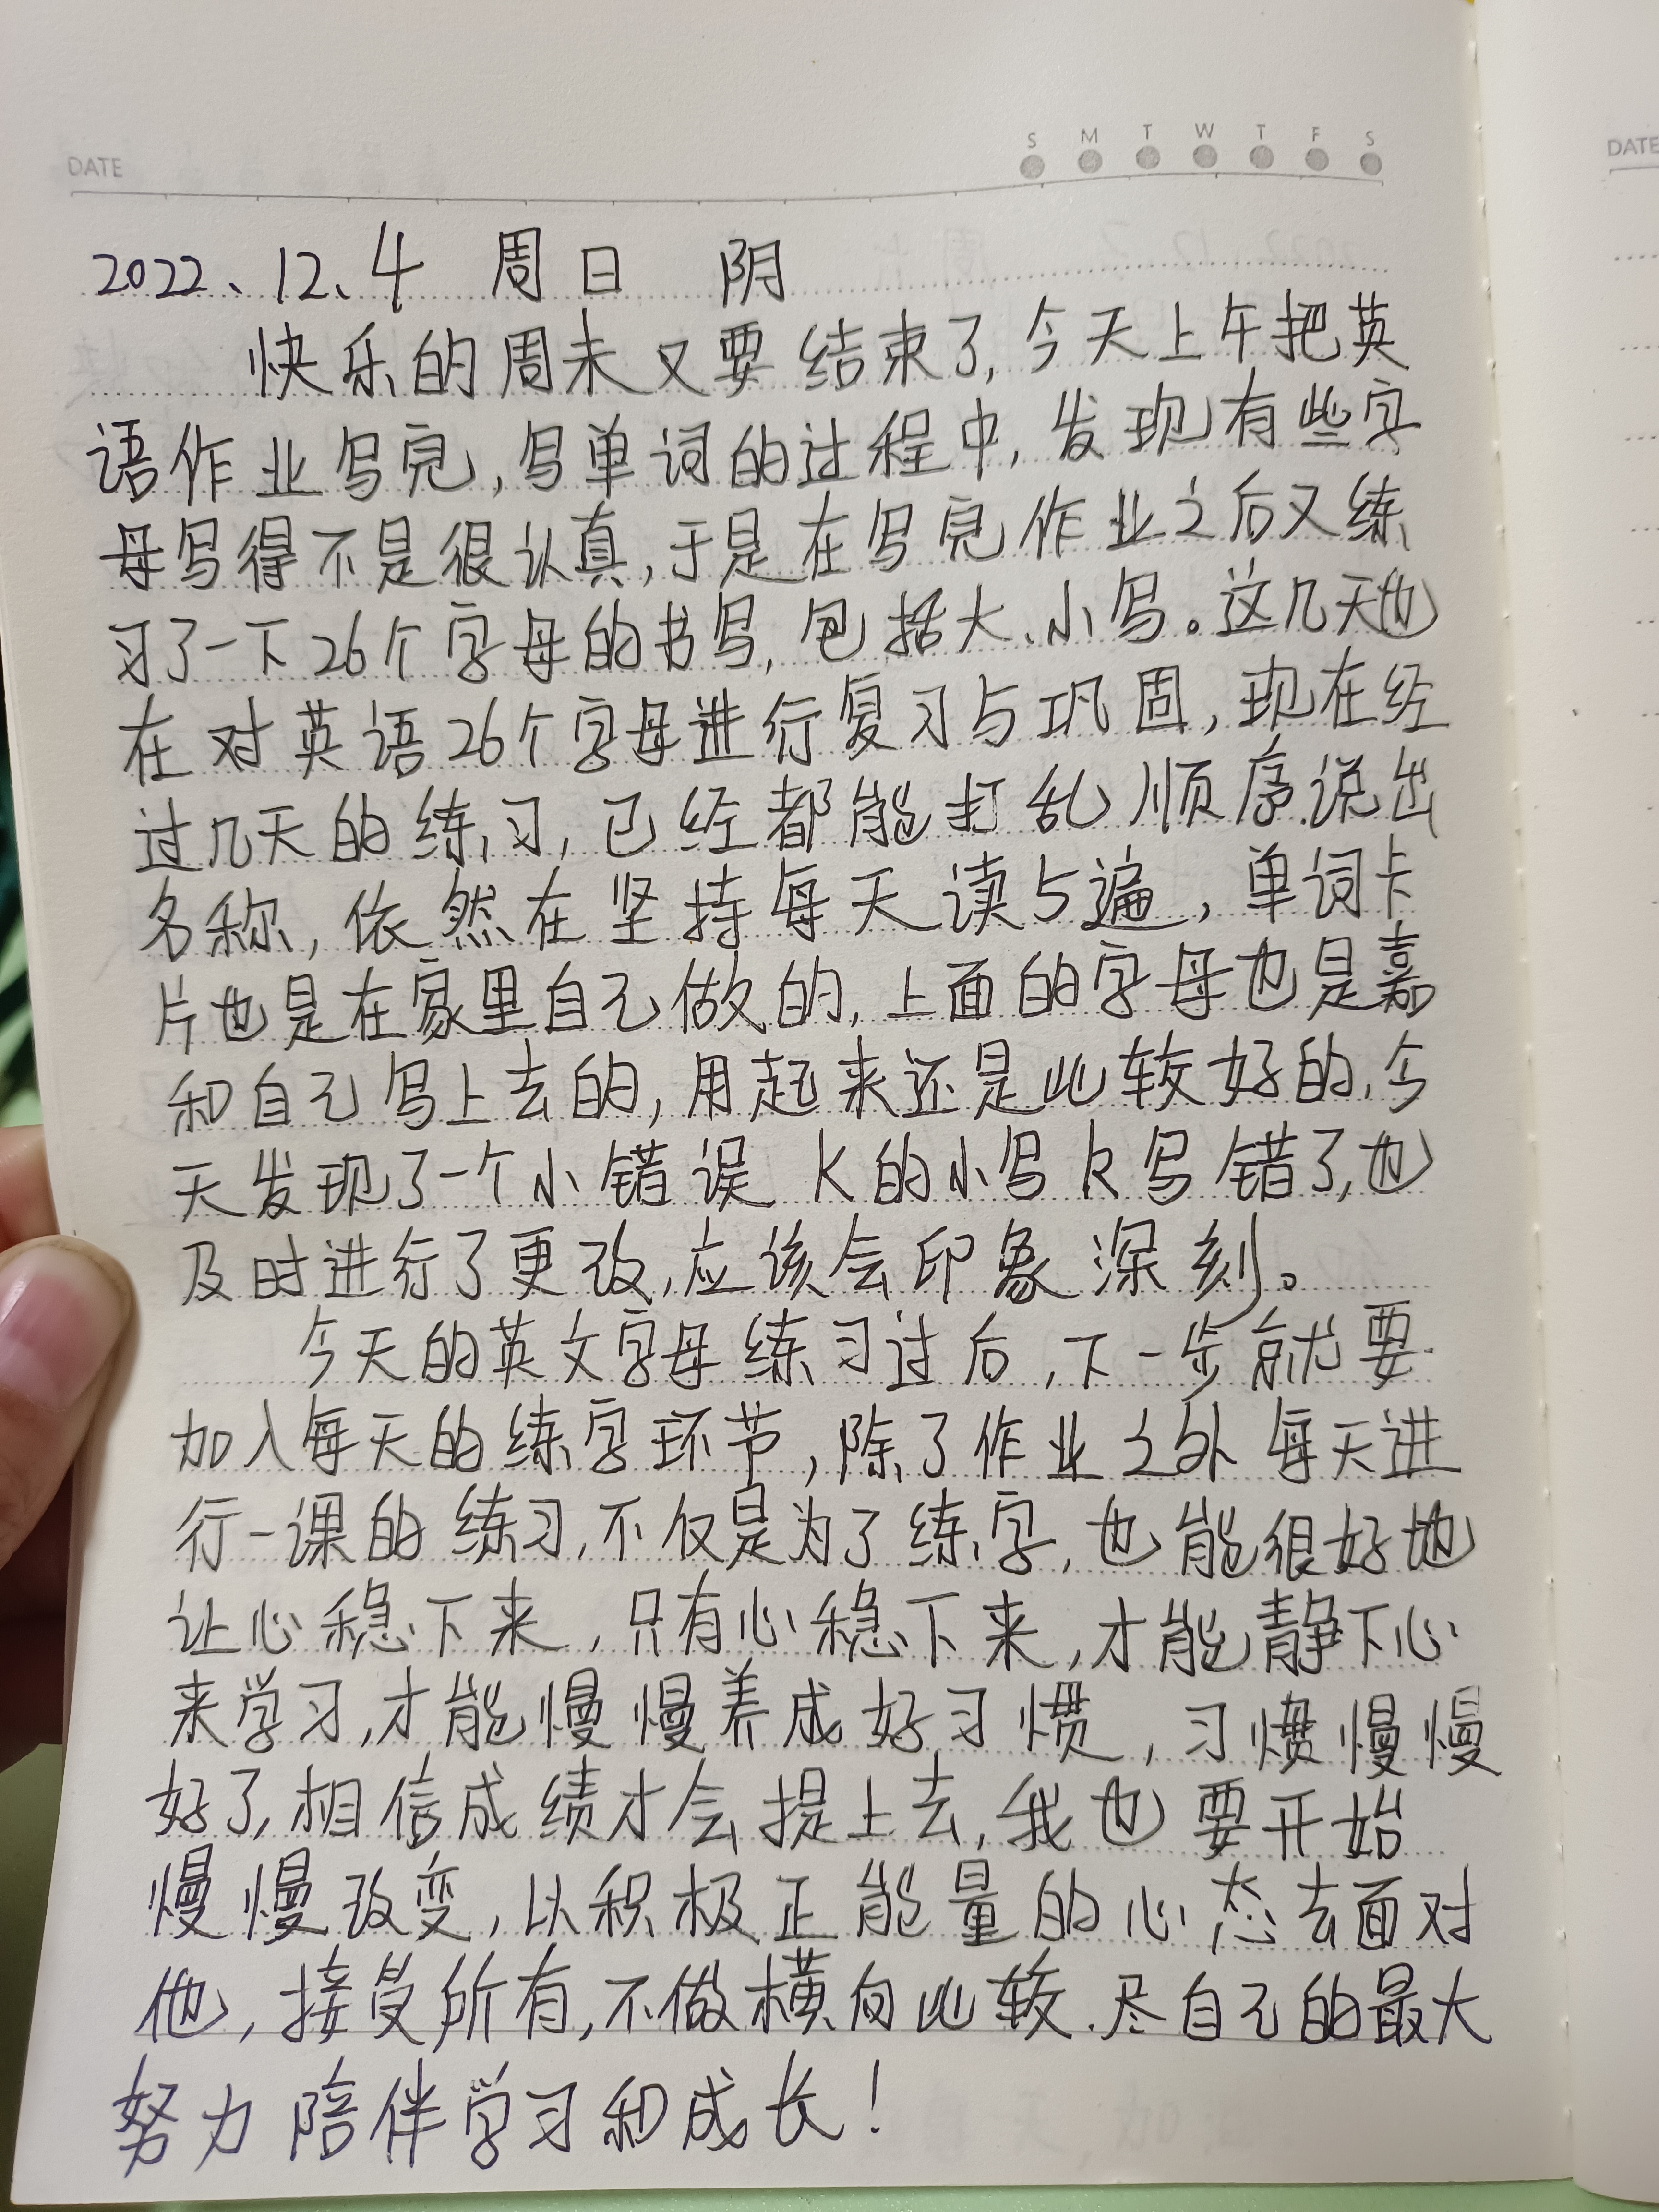 DATE
S M T W T F S
DATE
2022、12、4 周日 阴
快乐的周末又要结束了,今天上午把英
语作业写完,写单词的过程中,发现有些字
母写得不是很认真,于是在写完作业之后又练
习了一下26个字母的书写,包括大、小写。这几天也
在对英语26个字母进行复习与巩固,现在经
过几天的练习,已经都能打乱顺序说出
名称,依然在坚持每天读5遍,单词卡
片也是在家里自己做的,上面的字母也是嘉
和自己写上去的,用起来还是比较好的,今
天发现了一个小错误 K的小写k写错了,也
及时进行了更改,应该会印象深刻。
今天的英文字母练习过后,下一步就要
加入每天的练字环节,除了作业之外每天进
行一课的练习,不仅是为了练字,也能很好地
让心稳下来,只有心稳下来,才能静下心
来学习,才能慢慢养成好习惯,习惯慢慢
好了,相信成绩才会提上去,我也要开始
慢慢改变,以积极正能量的心态去面对
他,接受所有,不做横向比较.尽自己的最大
努力陪伴学习和成长!